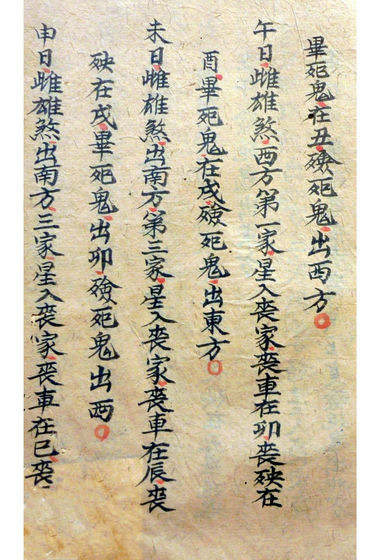 畢死鬼在丑殮死鬼出西方
午日雌雄煞西方第一家星入喪家喪車在卯喪殃在
酉畢死鬼在戌殮死鬼出東方
未日雌雄煞出南方第三家星入喪家喪車在辰喪
殃在戌畢死鬼出卯殮死鬼出西
申日雌雄煞出南方三家星入喪家喪車在巳喪